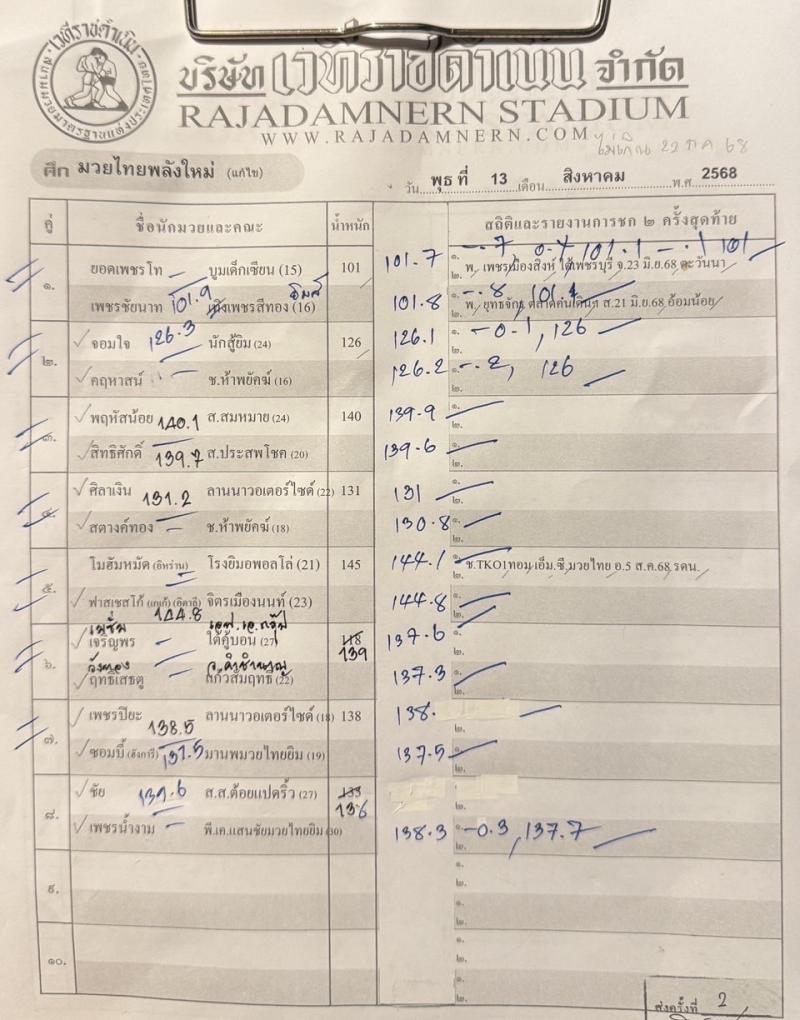 เวทีราชดำเนิน
บริษัท เวทีราชดำเนิน จำกัด
RAJADAMNERN STADIUM
WWW.RAJADAMNERN.COM
ศึก มวยไทยพลังใหม่ (แก้ไข) วัน พุธ ที่ 13 เดือน สิงหาคม พ.ศ 2568
คู่ ชื่อนักมวยและคณะ น้ำหนัก สถิติและรายงานการชก ๒ ครั้งสุดท้าย
๑. ยอดเพชรโท บูมเด็กเซียน (15) 101 101.7 ๑. -.7 0.7 101.1 -.1 101
๒. พ. เพชรเมืองสิงห์ ใต้เพชรบุรี จ.23 มิ.ย.68 ตะวันนา
เพชรชัยนาท 101.9 (16) 101.8 ๑. -.8 101.1
๒. พ. ยุทธจักร ส.21 มิ.ย.68 อ้อมน้อย
๒. จอมใจ 126.3 นักสู้ยิม (24) 126 126.1 ๑. -0.1, 126
๒.
คฤหาสน์ ช.ห้าพยัคฆ์ (16) 126.2 ๑. -.2, 126
๒.
๓. พฤหัสน้อย 140.1 ส.สมหมาย (24) 140 139.9 ๑.
๒.
สิทธิศักดิ์ 139.7 ส.ประสพโชค (20) 139.6 ๑.
๒.
๔. ศิลาเงิน 131.2 ลานนาวอเตอร์ไซด์ (22) 131 131 ๑.
๒.
สตางค์ทอง ช.ห้าพยัคฆ์ (18) 130.8 ๑.
๒.
๕. โมฮัมหมัด (อิหร่าน) โรงยิมอพอลโล่ (21) 145 144.1 ๑. ช.TKO1ทอม เอ็ม.ซี.มวยไทย อ.5 ส.ค.68 รดน.
๒.
ฟาสเชสโก้ (อิตาลี) 144.8 จิตรเมืองนนท์ (23) 144.8 ๑.
๒.
๖. เจริญพร ใต้คู้บอน (27) 118 139 137.6 ๑.
๒.
วังทอง
ฤทธิ์เสธตู แก้วสัมฤทธิ์ (22) 137.3 ๑.
๒.
๗. เพชรปิยะ 138.5 ลานนาวอเตอร์ไซด์ (18) 138 138.
๒.
ซอมบี้ (ฮังการี) 137.5 มานพมวยไทยยิม (19) 137.5 ๑.
๒.
๘. ชัย ส.ส.ต้อยแปดริ้ว (27) 133 136
๒.
เพชรน้ำงาม พี.เค.แสนชัยมวยไทยยิม (30) 138.3 ๑. -0.3, 137.7
๒.
๙. ๑.
๒.
๑.
๒.
๑๐. ๑.
๒.
๑.
๒.
ส่งครั้งที่ 2